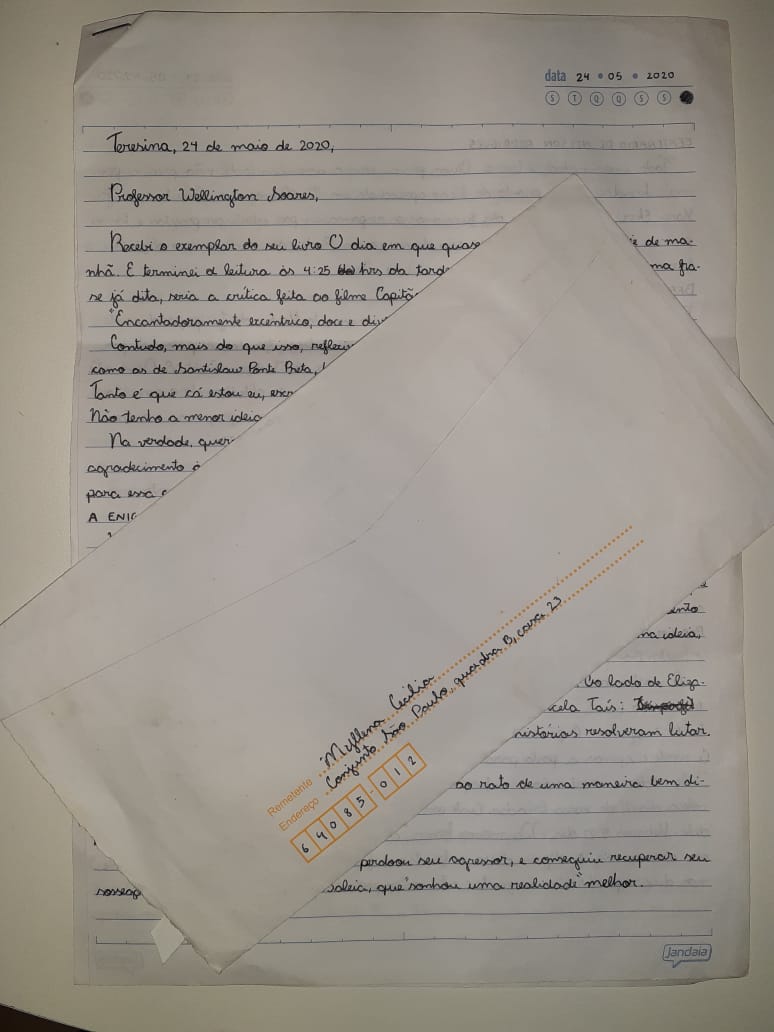 data 24 • 05 • 2020
S T Q Q S S
Teresina, 24 de maio de 2020,
Professor Wellington Soares,
Recebi o exemplar do seu livro O dia em que quase de ma-
nhã. E terminei a leitura às 4:25 hrs da tard ma fra-
se já dita, seria a crítica feita ao filme Capitã
"Encantadoramente excêntrico, doce e di
Contudo, mais do que isso, refle
como as de Santislaw Ponte Preta,
Tanto é que cá estou eu, esc
Não tenho a menor ideia
Na verdade, quer
agradecimento
para essa
A ENIG
ento
ma ideia,
Ao lado de Eliza-
cela Taís:
histórias resolveram lutar.
ao rato de uma maneira bem di-
perdoou seu agressor, e conseguiu recuperar seu
sosseg baleia, que "sonhou uma realidade" melhor.
Jandaia
Remetente Myllena Cecília
Endereço Conjunto São Paulo, quadra B, casa 23
64085-012